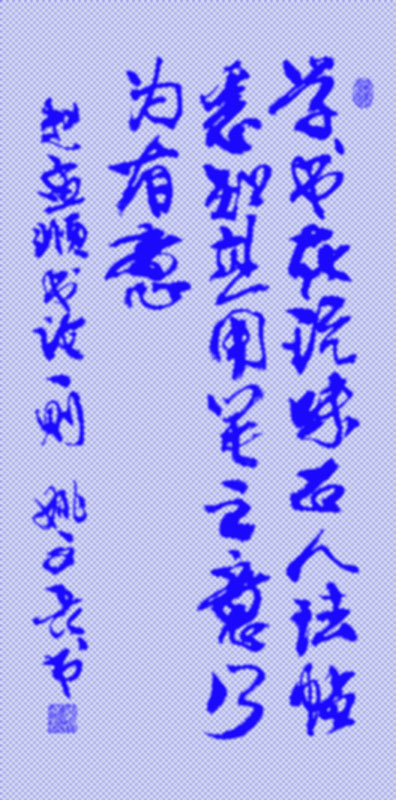 学书在玩味古人法帖
悉知其用笔之意乃
为有意
赵孟頫书论一则 姚